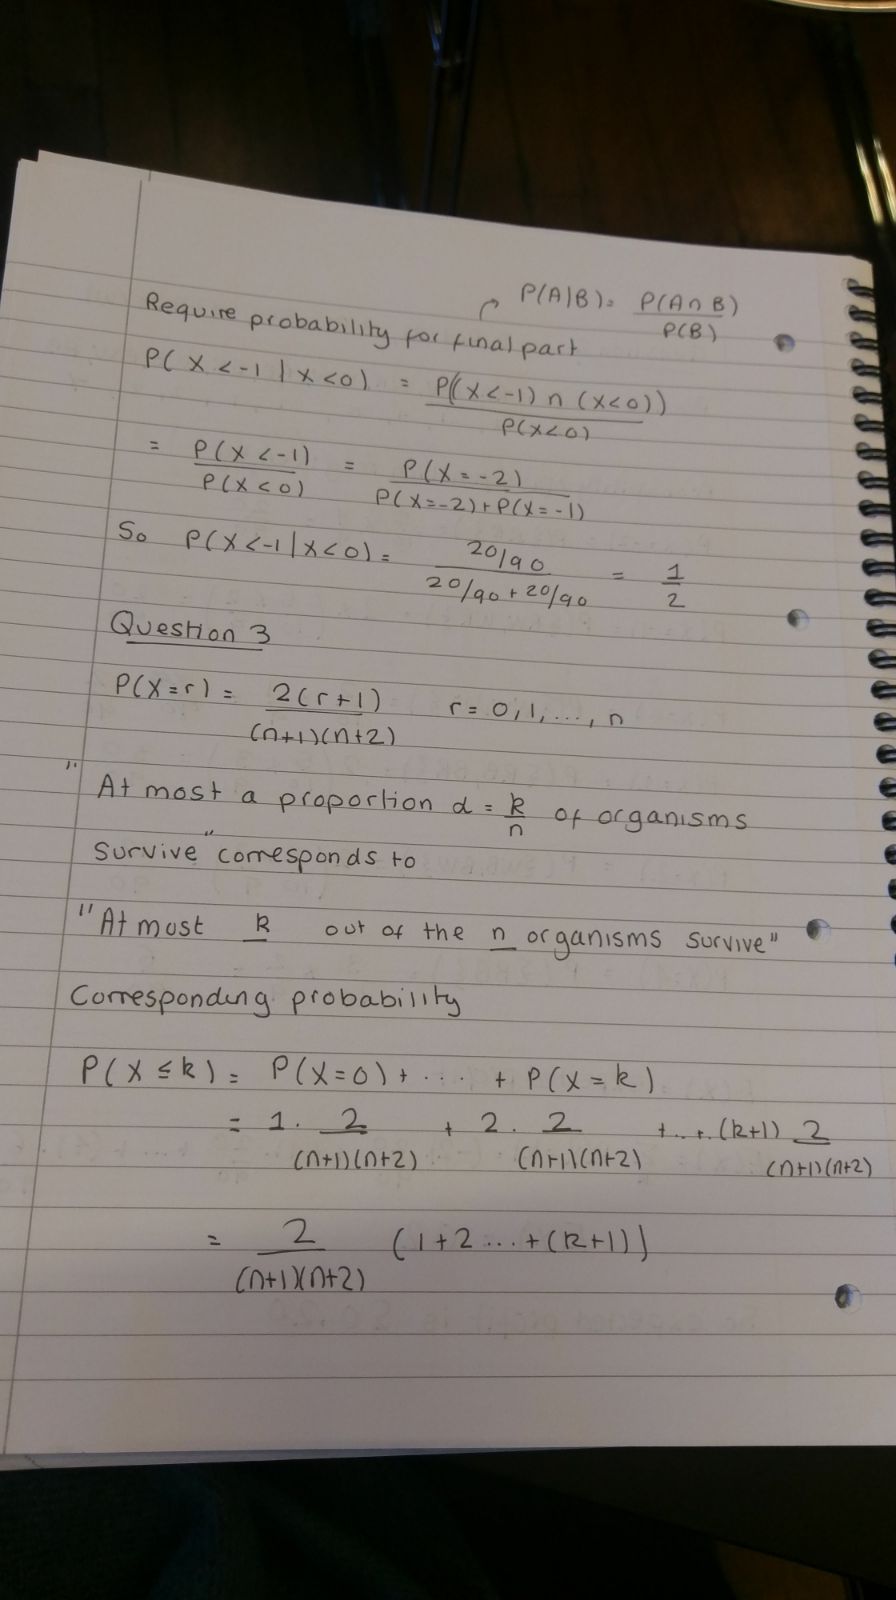 P(A|B) = P(A ∩ B) / P(B)
Require probability for final part
P(X < -1 | X < 0) = P((X < -1) ∩ (X < 0)) / P(X < 0)
= P(X < -1) / P(X < 0) = P(X = -2) / P(X = -2) + P(X = -1)
So P(X < -1 | X < 0) = 20/90 / 20/90 + 20/90 = 1/2
Question 3
P(X = r) = 2(r+1) / (n+1)(n+2) r = 0, 1, ..., n
"At most a proportion d = k/n of organisms
Survive" corresponds to
"At most k out of the n organisms survive"
Corresponding probability
P(X ≤ k) = P(X = 0) + .... + P(X = k)
= 1. 2 / (n+1)(n+2) + 2. 2 / (n+1)(n+2) + ... + (k+1) 2 / (n+1)(n+2)
= 2 / (n+1)(n+2) (1 + 2 ... + (k+1))